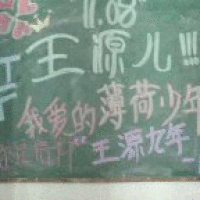 1.08
王源儿!!!
我爱的薄荷少年
"王源九年